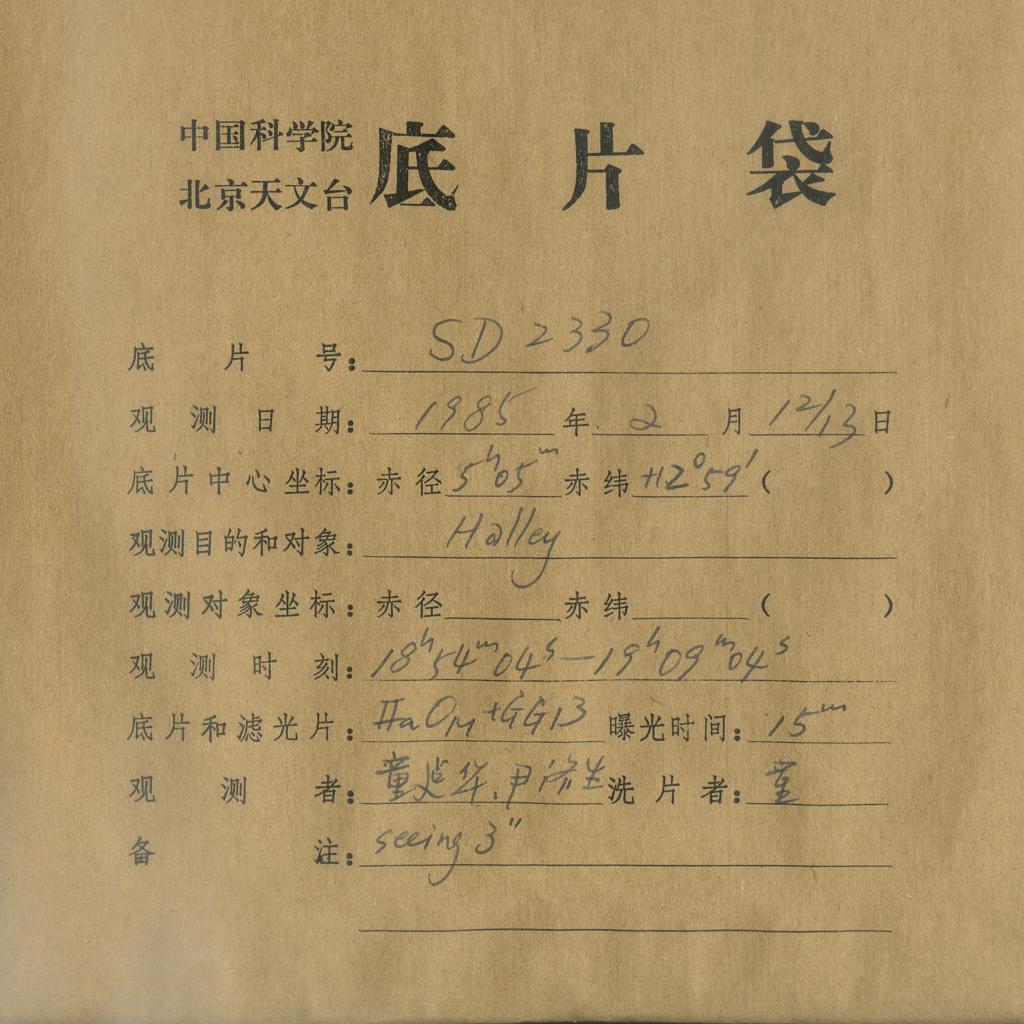 中国科学院
北京天文台 底片袋
底片号: SD 2330
观测日期: 1985 年 2 月 12/13 日
底片中心坐标: 赤径 5ʰ05ᵐ 赤纬 +12°59′ ( )
观测目的和对象: Halley
观测对象坐标: 赤径 赤纬 ( )
观测时刻: 18ʰ54ᵐ04ˢ—19ʰ09ᵐ04ˢ
底片和滤光片: IIaO +GG13 曝光时间: 15ᵐ
观测者: 童 华、尹 生 洗片者: 童
备注: seeing 3″